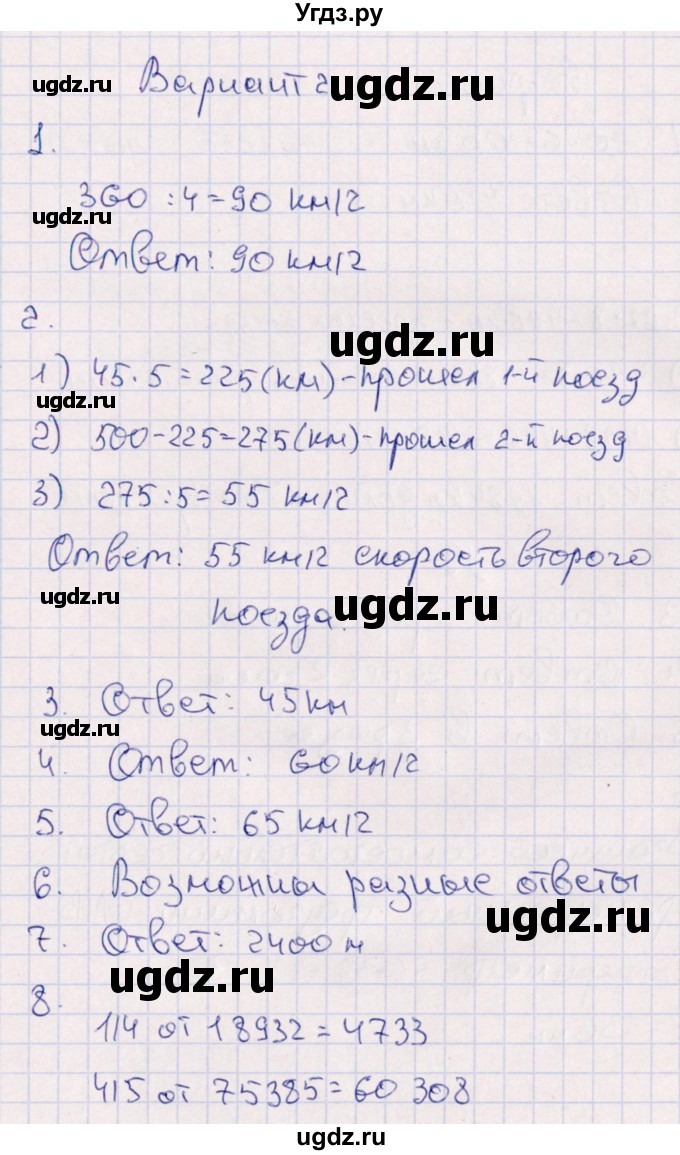 Угдз.ру
Вариант 2
ugdz.ru ugdz.ru
1.
360 : 4 = 90 км/ч
ugdz.ru
Ответ: 90 км/ч
2.
ugdz.ru
1) 45 · 5 = 225 (км) - прошел 1-й поезд
ugdz.ru
2) 500 - 225 = 275 (км) - прошел 2-й поезд
3) 275 : 5 = 55 км/ч
Ответ: 55 км/ч скорость второго
ugdz.ru поезда. ugdz.ru
3. Ответ: 45 км
ugdz.ru
4. Ответ: 60 км/ч
5. Ответ: 65 км/ч
6. Возможны разные ответы
ugdz.ru
7. Ответ: 2400 м
ugdz.ru
8.
1/4 от 18932 = 4733
4/5 от 75385 = 60 308
ugdz.ru